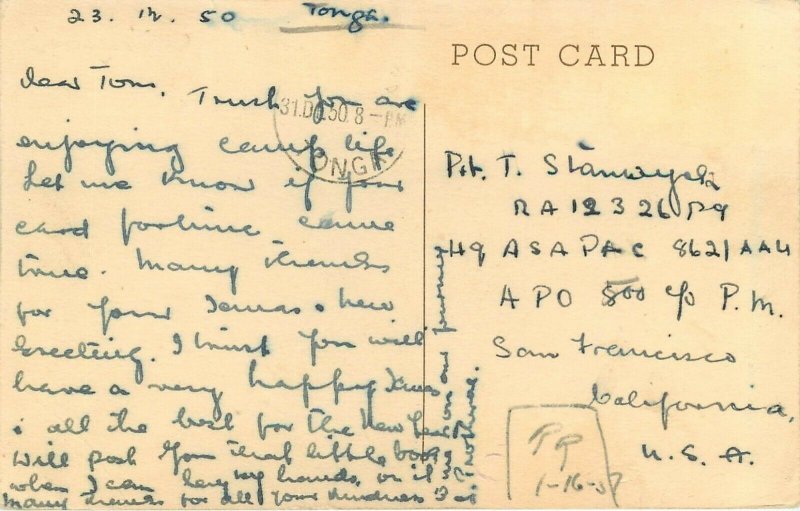 23. 50 Tonga.
Dear Tom, Trust you are
enjoying camp life
Let me know if your
card fortune came
true. Many thanks
for your Xmas & New
Greeting. I trust you will
have a very happy Xmas
& all the best for the New Year
Will post you that little book
when I can lay my hands on it
Many thanks for all your kindness
on our journey
31.D 50 8-PM
TONGA
POST CARD
Pvt. T. Stanwyck
RA 12 3 26
Hq ASAPAC 8621 AAU
APO 500 c/o P.M.
San Francisco
California,
U.S.A.
1-16-51